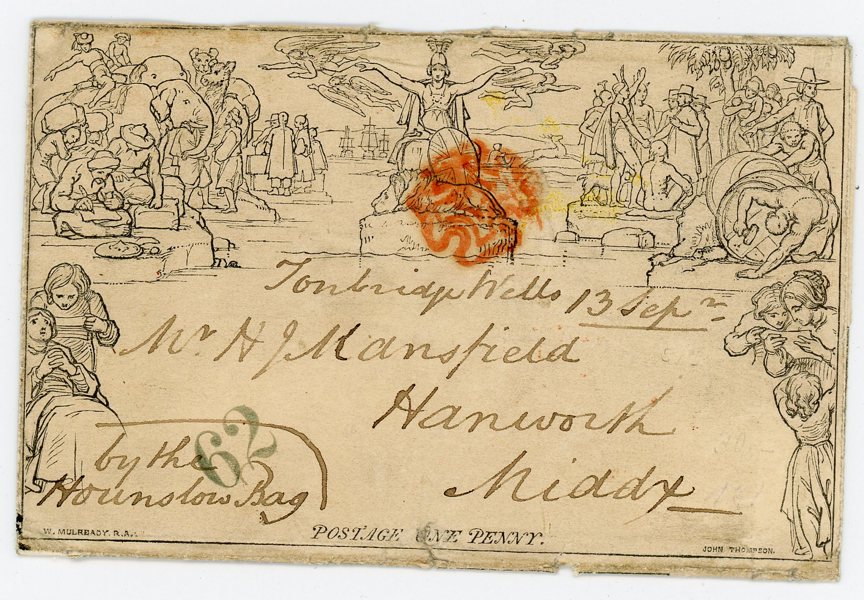 Tonbridge Wells 13 Sepr
Mr H J Mansfield
Hanworth
Middx
by the
Hounslow Bag
62
W. MULREADY. R.A.
POSTAGE ONE PENNY.
JOHN THOMPSON.